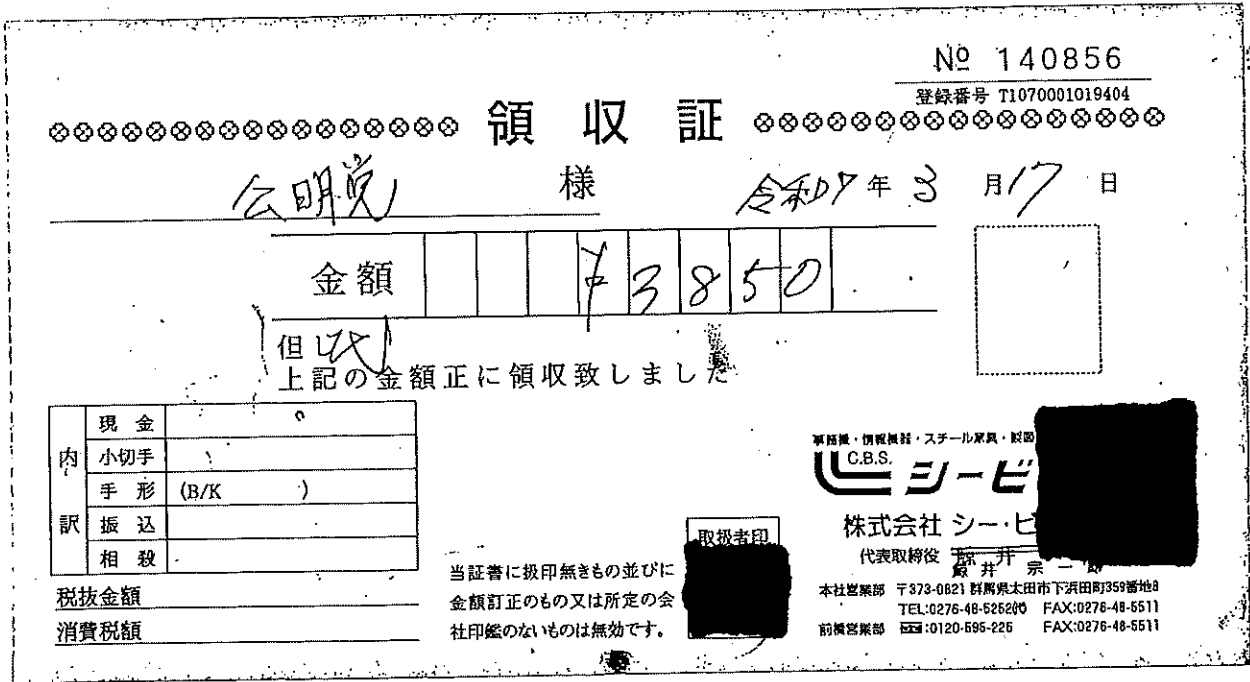 № 140856
登録番号 T1070001019404
領収証
公明党 様 令和7年3月17日
金額 ¥3850
但し代
上記の金額正に領収致しました
内訳
現金
小切手
手形 (B/K )
振込
相殺
税抜金額
消費税額
当証書に扱印無きもの並びに
金額訂正のもの又は所定の会
社印鑑のないものは無効です。
取扱者印
事務機・情報機器・スチール家具・
C.B.S.
シービ
株式会社 シー・ビ
代表取締役 井 宗一
本社営業部 〒373-0821 群馬県太田市下浜田町359番地8
TEL:0276-48-5252㈹ FAX:0276-48-5511
前橋営業部 :0120-595-225 FAX:0276-48-5511